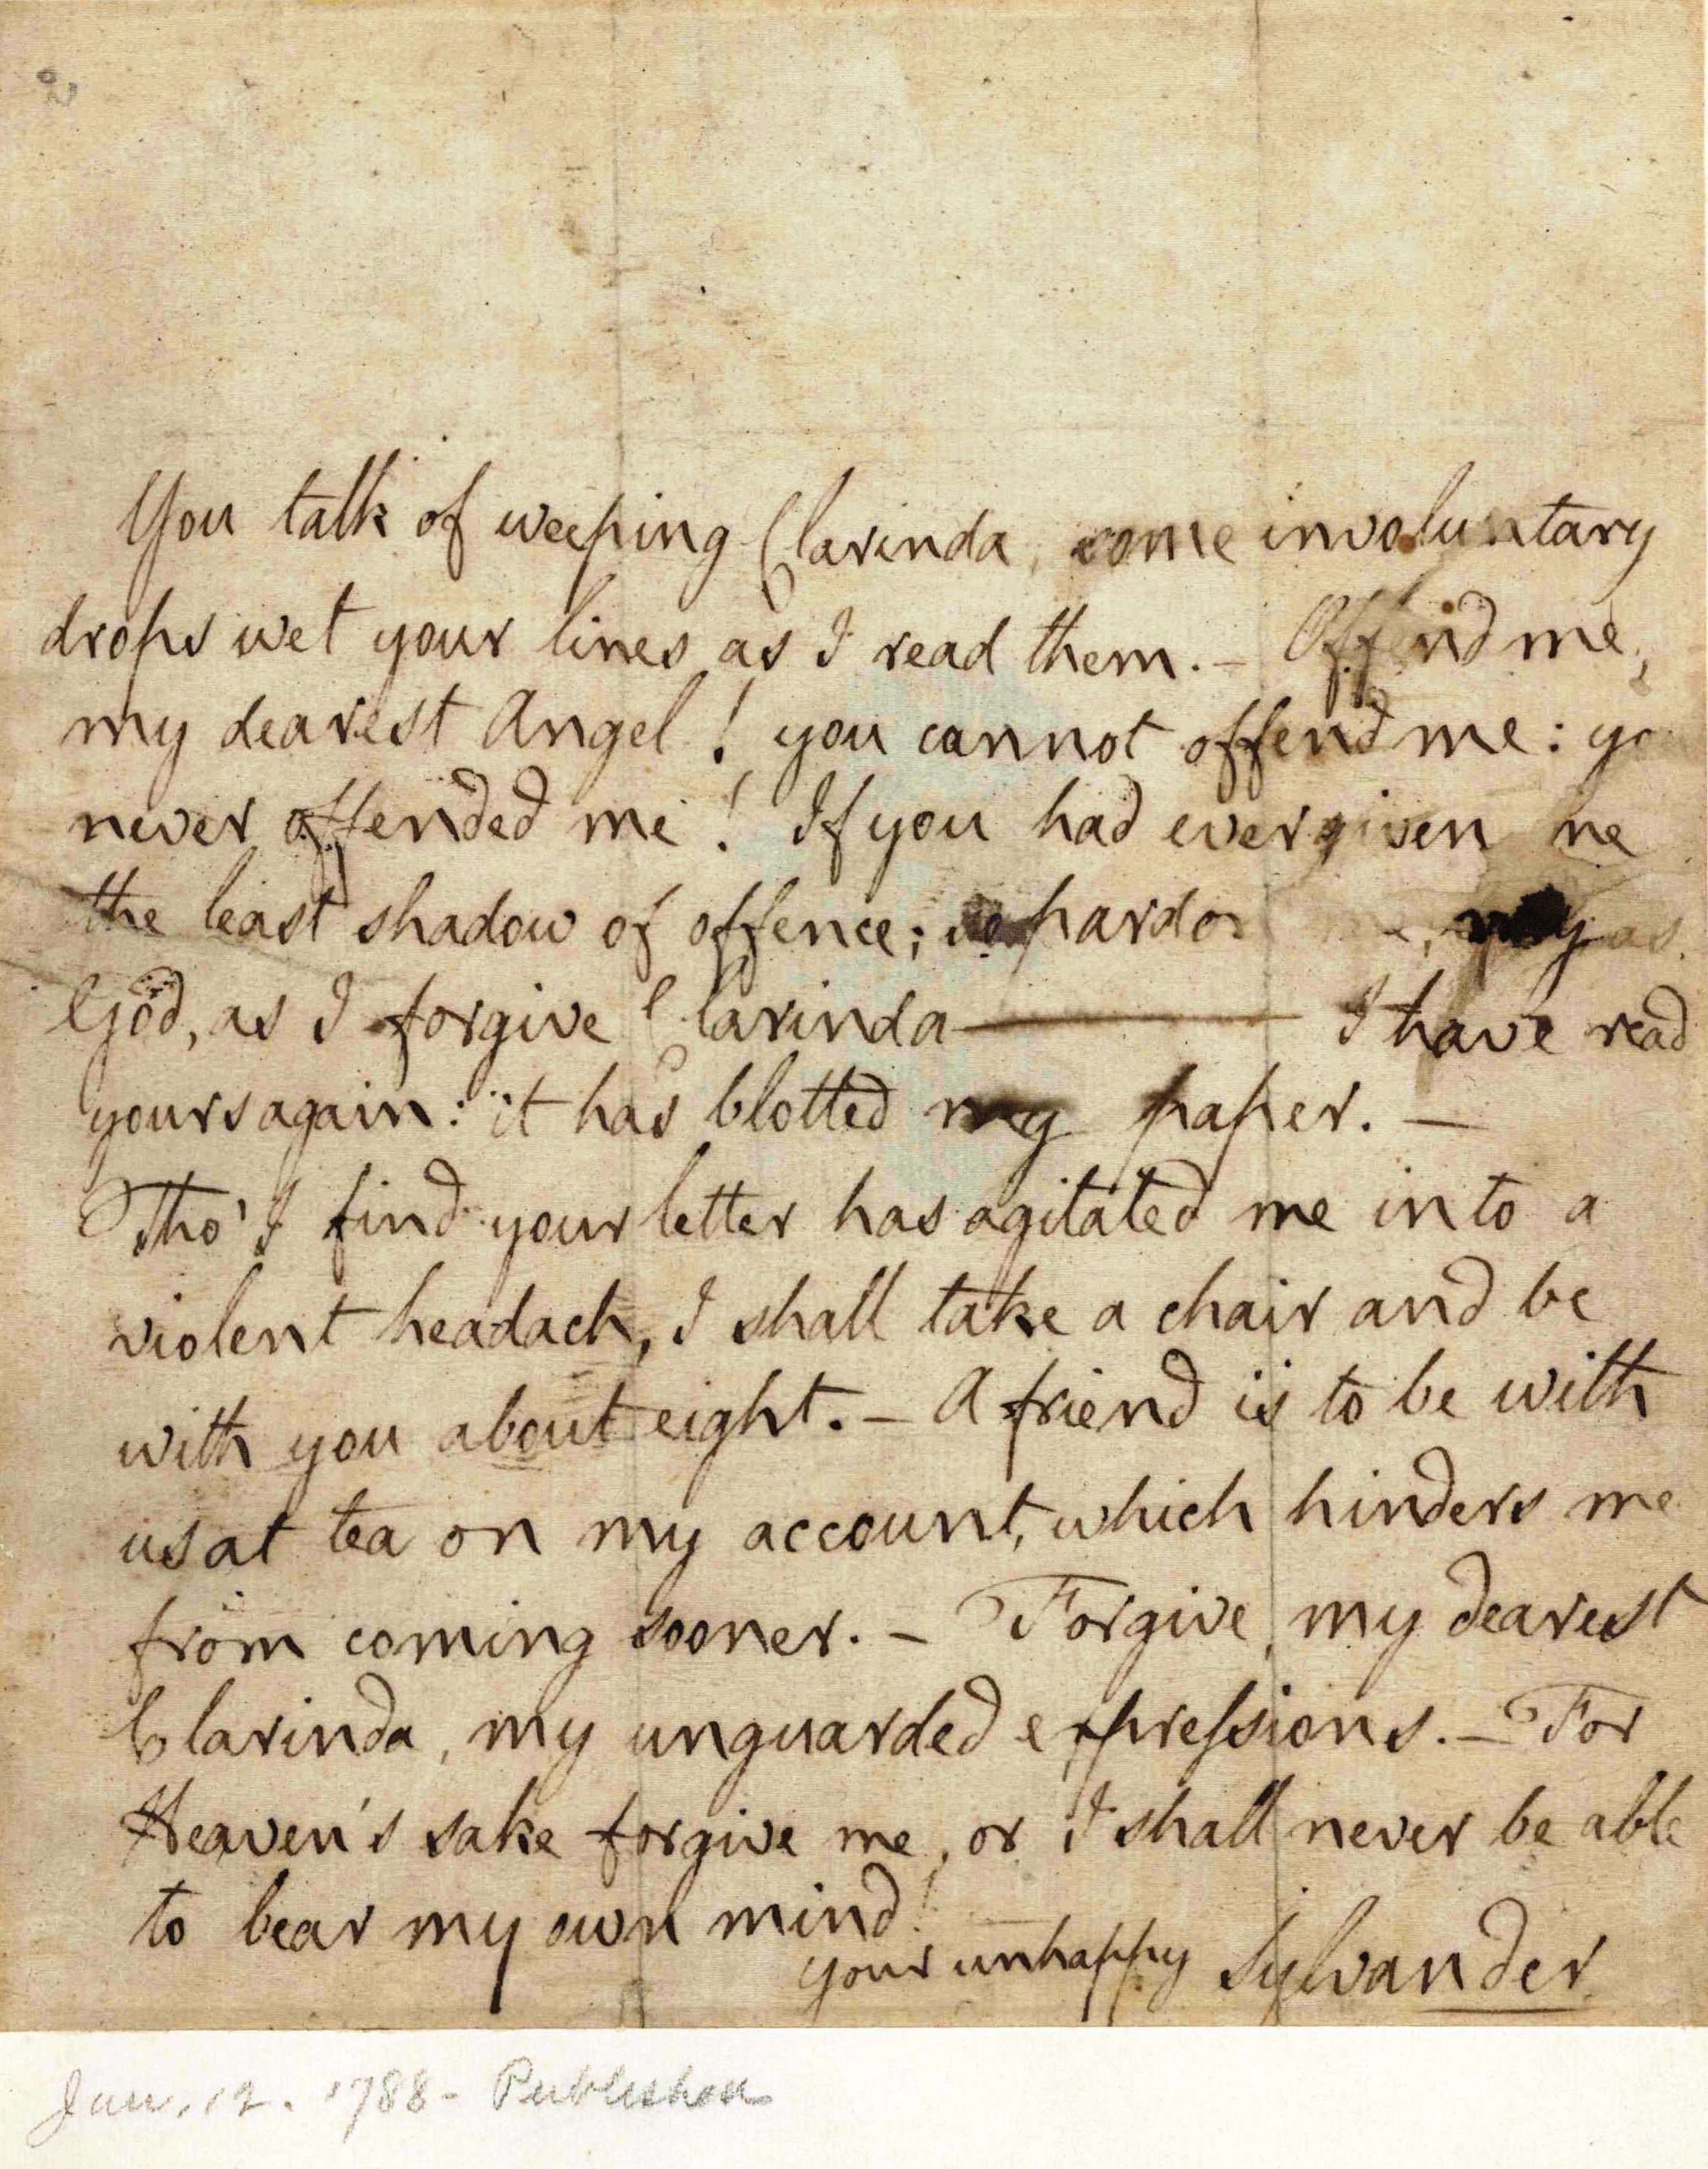 You talk of weeping Clarinda, some involuntary
drops wet your lines as I read them. — Offend me,
my dearest Angel! you cannot offend me: yo
never offended me! If you had ever given me
the least shadow of offence; so pardon me, my as
God, as I forgive Clarinda — I have read
yours again: it has blotted my paper. —
Tho' I find your letter has agitated me into a
violent headach, I shall take a chair and be
with you about eight. — A friend is to be with
us at tea on my account, which hinders me
from coming sooner. — Forgive, my dearest
Clarinda, my unguarded expressions. — For
Heaven's sake forgive me, or I shall never be able
to bear my own mind!
your unhappy Sylvander
Jan. 12. 1788 - Published